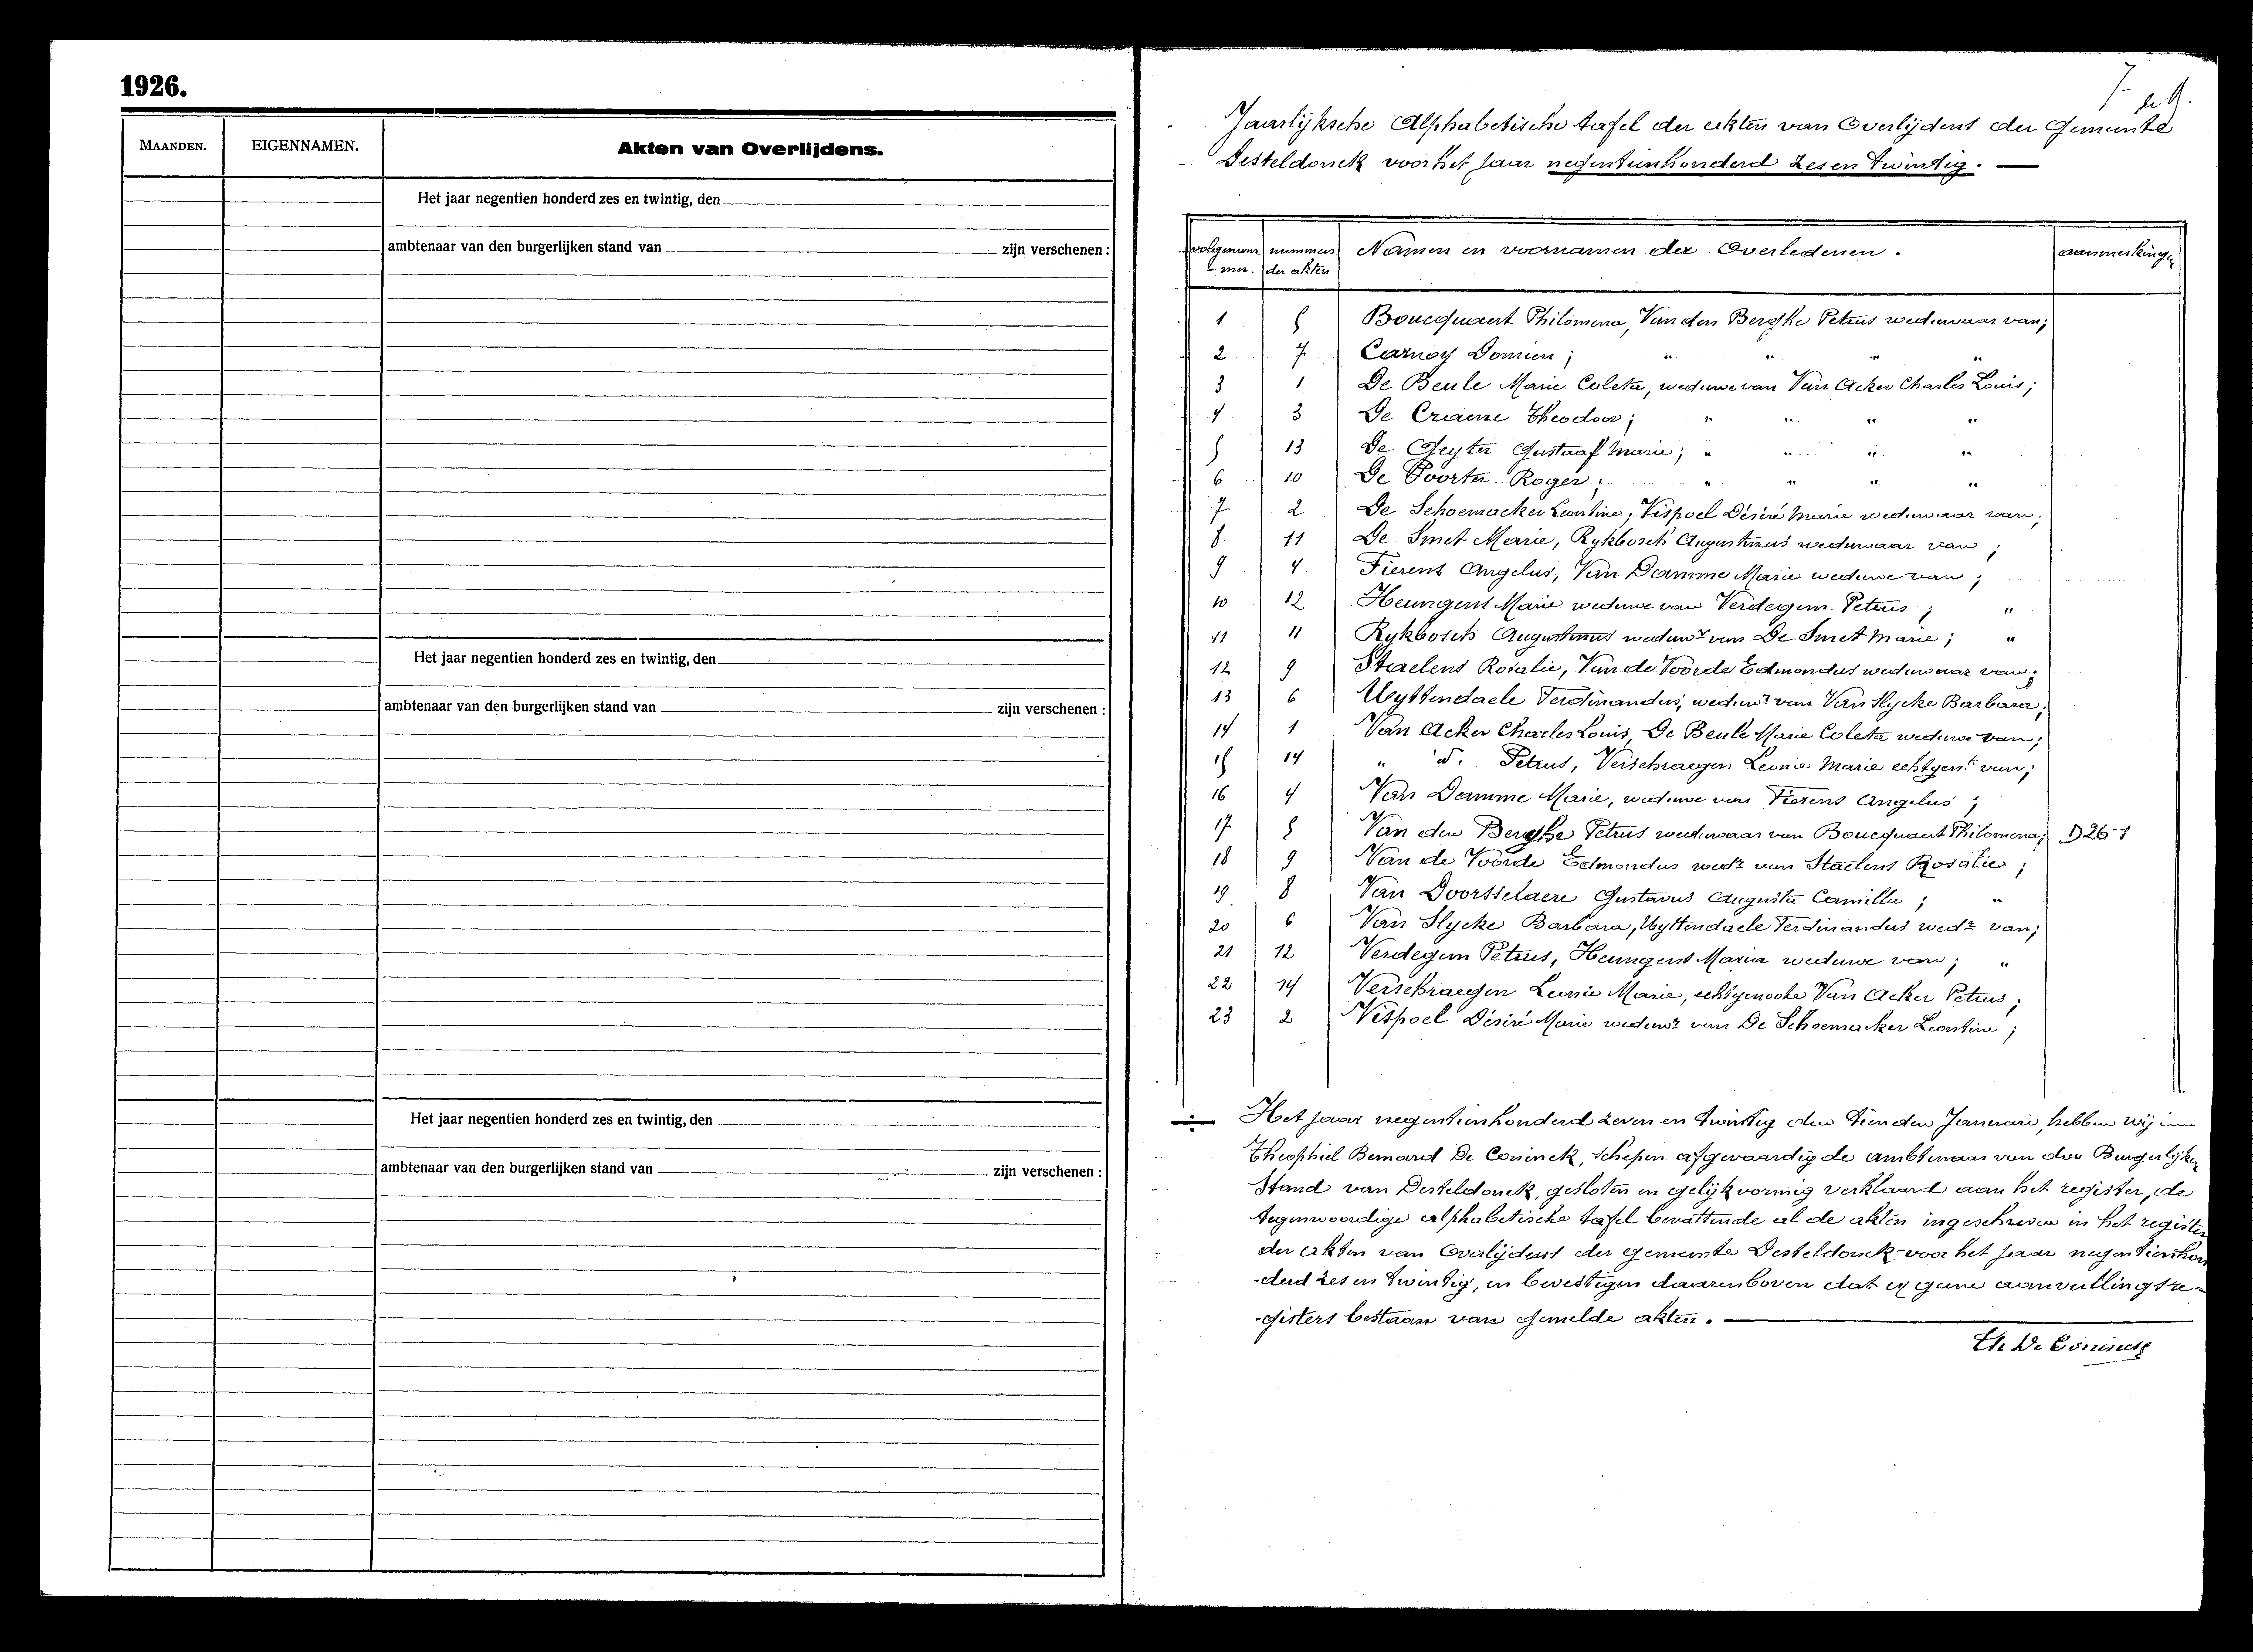 1926.
MAANDEN. EIGENNAMEN. Akten van Overlijdens.
Het jaar negentien honderd zes en twintig, den
ambtenaar van den burgerlijken stand van zijn verschenen :
Het jaar negentien honderd zes en twintig, den
ambtenaar van den burgerlijken stand van zijn verschenen :
Het jaar negentien honderd zes en twintig, den
ambtenaar van den burgerlijken stand van zijn verschenen :
7
Jaarlijksche Alphabetische tafel der akten van Overlijdens der Gemeente
Desteldonck voor het jaar negentienhonderd zes en twintig. —
volgnum- nummers Namen en voornamen der Overledenen. aanmerkingen
- mer. der akten
1 5 Boucquaert Philomena, Van den Berghe Petrus weduwaar van;
2 7 Carnoy Domien; " " " "
3 1 De Beule Marie Coleta, weduwe van Van Acker Charles Louis;
4 3 De Craene Theodoor; " " " "
5 13 De Geyter Gustaaf Marie; " " " "
6 10 De Poorter Roger; " " " "
7 2 De Schoemacker Leontine, Vispoel Désiré Marie weduwaar van;
8 11 De Smet Marie, Rykbosch Augustinus weduwaar van ;
9 4 Fierens Angelus, Van Damme Marie weduwe van ;
10 12 Heungens Marie weduwe van Verdegem Petrus ; "
11 11 Rykbosch Augustinus weduwr van De Smet Marie; "
12 9 Staelens Rosalie, Van de Voorde Edmondus weduwaar van;
13 6 Uyttendaele Ferdinandus, weduwr van Van Slycke Barbara;
14 1 Van Acker Charles Louis, De Beule Marie Coleta weduwe van;
15 14 " d. Petrus, Verschraegen Leonie Marie echtgent van;
16 4 Van Damme Marie, weduwe van Fierens Angelus ;
17 5 Van den Berghe Petrus weduwaar van Boucquaert Philomena; D26-1
18 9 Van de Voorde Edmondus wedr van Staelens Rosalie ;
19. 8 Van Doorsselaere Gustavus Augusta Camilla ; "
20 6 Van Slycke Barbara, Uyttendaele Ferdinandus wedr van;
21 12 Verdegem Petrus, Heungens Maria weduwe van; "
22 14 Verschraegen Leonie Marie, echtgenoote Van Acker Petrus;
23 2 Vispoel Désiré Marie weduwr van De Schoemacker Leontine ;
Het jaar negentienhonderd zeven en twintig den tienden Januari, hebben wij
Theophiel Bernard De Coninck, schepen afgevaardigde ambtenaar van den Burgerlijken
Stand van Desteldonck, gesloten en gelijkvormig verklaard aan het register, de
tegenwoordige alphabetische tafel bevattende al de akten ingeschreven in het register
der akten van Overlijdens der gemeente Desteldonck voor het jaar negentienhon
-derd zes en twintig, en bevestigen daarenboven dat er geene aanvullingsre-
-gisters bestaan van gemelde akten. —
Th De Coninck